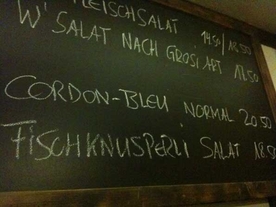 FLEISCHSALAT 14.50/18.50
W' SALAT NACH GROSI ART 18.50
CORDON-BLEU NORMAL 20.50
FISCHKNUSPERLI SALAT 18.50